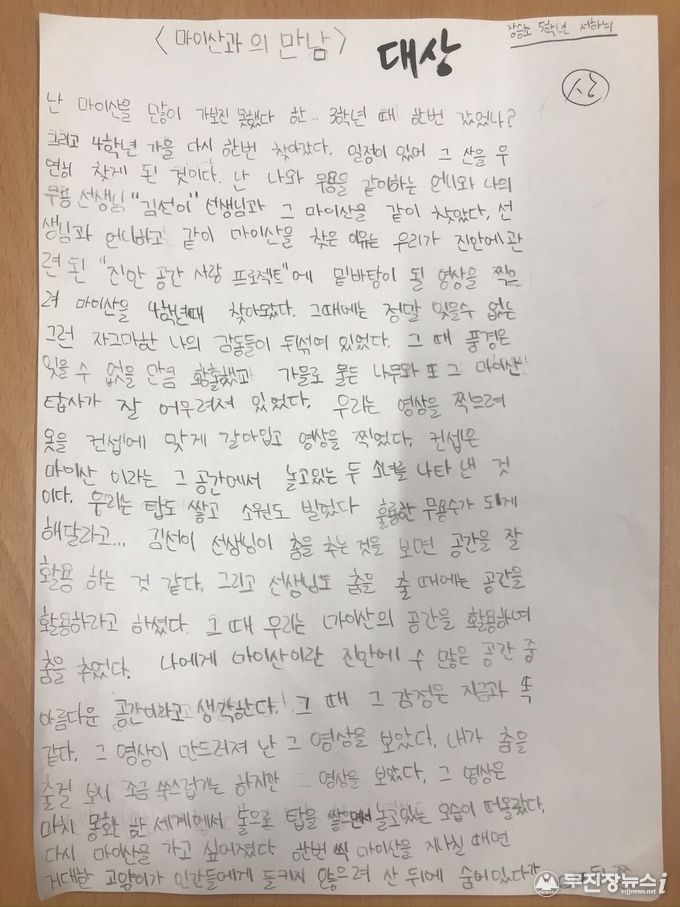 장승초 5학년 서하늬
<마이산과의 만남>
대상
상
난 마이산을 많이 가보진 못했다 한.. 3학년 때 한번 갔었나?
그리고 4학년 가을 다시 한번 찾아갔다. 일정이 있어 그 산을 우
연히 찾게 된 것이다. 난 나와 무용을 같이하는 언니와 나의
무용 선생님 "김선이" 선생님과 그 마이산을 같이 찾았다. 선
생님과 언니하고 같이 마이산을 찾은 이유는 우리가 진안에 관
련 된 "진안 공간 사랑 프로젝트"에 밑바탕이 될 영상을 찍으
려 마이산을 4학년때 찾아왔다. 그때에는 정말 잊을수 없는
그런 자그마한 나의 감동들이 뒤섞여 있었다. 그 때 풍경은
잊을 수 없을 만큼 황홀했고 가을로 물든 나무와 또 그 마이산
탑사가 잘 어우려져 있었다. 우리는 영상을 찍으려
옷을 컨셉에 맞게 갈아입고 영상을 찍었다. 컨셉은
마이산 이라는 그 공간에서 놀고있는 두 소녀를 나타 낸 것
이다. 우리는 탑도 쌓고 소원도 빌었다 훌륭한 무용수가 되게
해달라고... 김선이 선생님이 춤을 추는것을 보면 공간을 잘
활용 하는 것 같다. 그리고 선생님도 춤을 출 때에는 공간을
활용하라고 하셨다. 그 때 우리는 마이산의 공간을 활용하여
춤을 추었다. 나에게 마이산이란 진안에 수 많은 공간 중
아름다운 공간이라고 생각한다! 그 때 그 감정은 지금과 똑
같다. 그 영상이 만드러져 난 그 영상을 보았다. 내가 춤을
출걸 보시 조금 쑥스럽기는 하지만 그 영상을 보았다. 그 영상은
마치 몽환 한 세계에서 돌으로 탑을 쌓으면서 놀고있는 모습이 떠올랐다.
다시 마이산을 가고 싶어졌다 한번 씩 마이산을 지나칠 때면
거대한 고양이가 인간들에게 들키지 않으려 산 뒤에 숨어있다가
무진장뉴스i
mjjnews.net